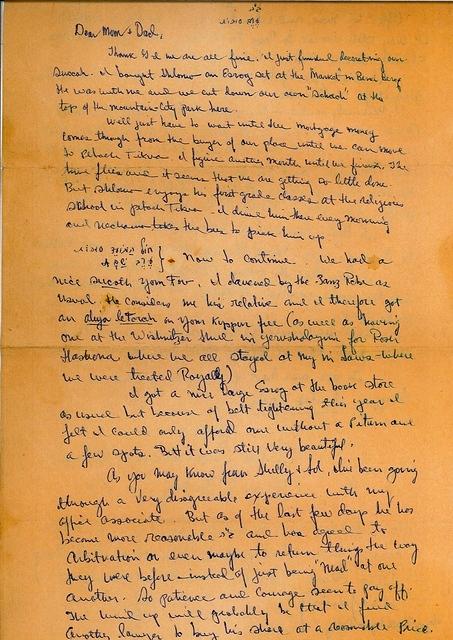 Dear Mom & Dad,
Thank G-d we are all fine. I just finished decorating our
Succah. I bought Shlomo an Esrog set at the Market in Benei Beraq.
He was with me and we cut down our own "Schach" at the
top of the mountain-City park here.
We'll just have to wait until the mortgage money
comes through from the buyer of our place until we can move
to Petach Tikva. I figure another month until we finish. The
time flies and it seems that we are getting so little done.
But Shlomo enjoys his first grade classes at the religious
school in Petach Tikva. I drive him there every morning
and Nechama takes the bus to pick him up.
Now to continue. We had a
nice Succoth Yom Tov. I davened by the Zanz Rebe as
usual. He considers me his relative and I therefore got
an aliya letorah on Yom Kippur free (as well as having
one at the Wishnitzer Shul in Yerusholayim for Rosh
Hashona where we all stayed at my in laws-where
we were treated Royally)
I got a nice large Esrog at the book store
as usual but because of belt tightening this year I
felt I could only afford one without a Pitum and
a few spots. But it was still very beautiful.
As you may know from Shelly & Sol, I've been going
through a very disagreeable experience with my
office associate. But as of the last few days he has
become more reasonable and has agreed to
Arbitration or even maybe to return things the way
they were before - instead of just being "mad" at one
another. So patience and courage seem to pay off.
The wind up will probably be that I find
another lawyer to buy his share at a reasonable price.